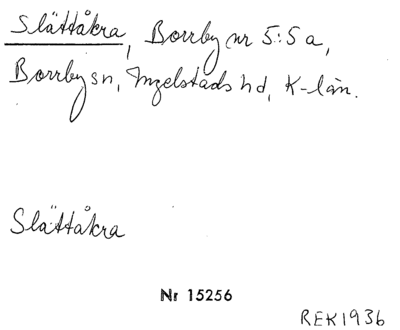 Slättåkra, Borrby nr 5:5a,
Borrby sn, Ingelstads hd, K-län.
Slättåkra
Nr 15256
REK1936